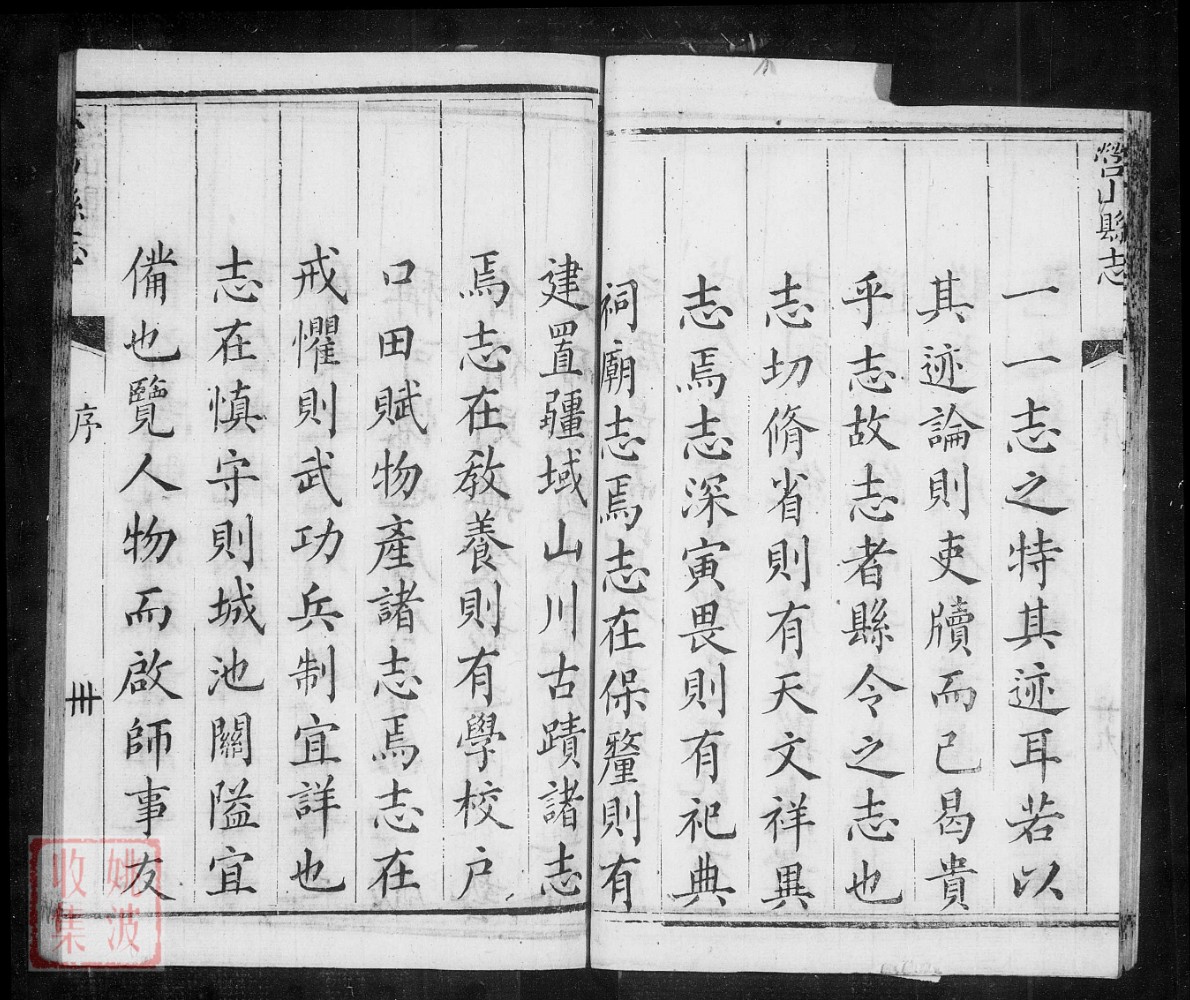 營山縣志
一一志之特其迹耳若以
其迹論則吏牘而已曷貴
乎志故志者縣令之志也
志切脩省則有天文祥異
志焉志深寅畏則有祀典
祠廟志焉志在保釐則有
建置疆域山川古蹟諸志
焉志在教養則有學校户
口田賦物產諸志焉志在
戒懼則武功兵制宜詳也
志在慎守則城池關隘宜
備也覽人物而啟師事友
序
姚波
收集